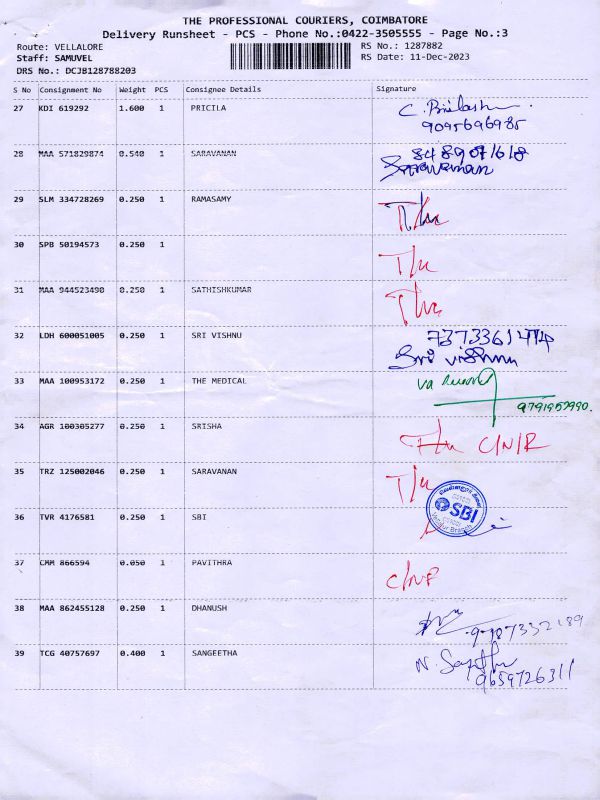 THE PROFESSIONAL COURIERS, COIMBATORE
Delivery Runsheet - PCS - Phone No.:0422-3505555 - Page No.:3
Route: VELLALORE RS No.: 1287882
Staff: SAMUVEL RS Date: 11-Dec-2023
DRS No.: DCJB128788203
S No Consignment No Weight PCS Consignee Details Signature
27 KDI 619292 1.600 1 PRICILA
9095696985
28 MAA 571829874 0.540 1 SARAVANAN 8489071618
Saravanan
29 SLM 334728269 0.250 1 RAMASAMY
30 SPB 50194573 0.250 1
31 MAA 944523490 0.250 1 SATHISHKUMAR
32 LDH 600051005 0.250 1 SRI VISHNU
Sri vishnu
33 MAA 100953172 0.250 1 THE MEDICAL
34 AGR 100305277 0.250 1 SRISHA C/N/R
35 TRZ 125002046 0.250 1 SARAVANAN
36 TVR 4176581 0.250 1 SBI SBI
37 CMM 866594 0.050 1 PAVITHRA
38 MAA 862455128 0.250 1 DHANUSH
39 TCG 40757697 0.400 1 SANGEETHA
9659726311